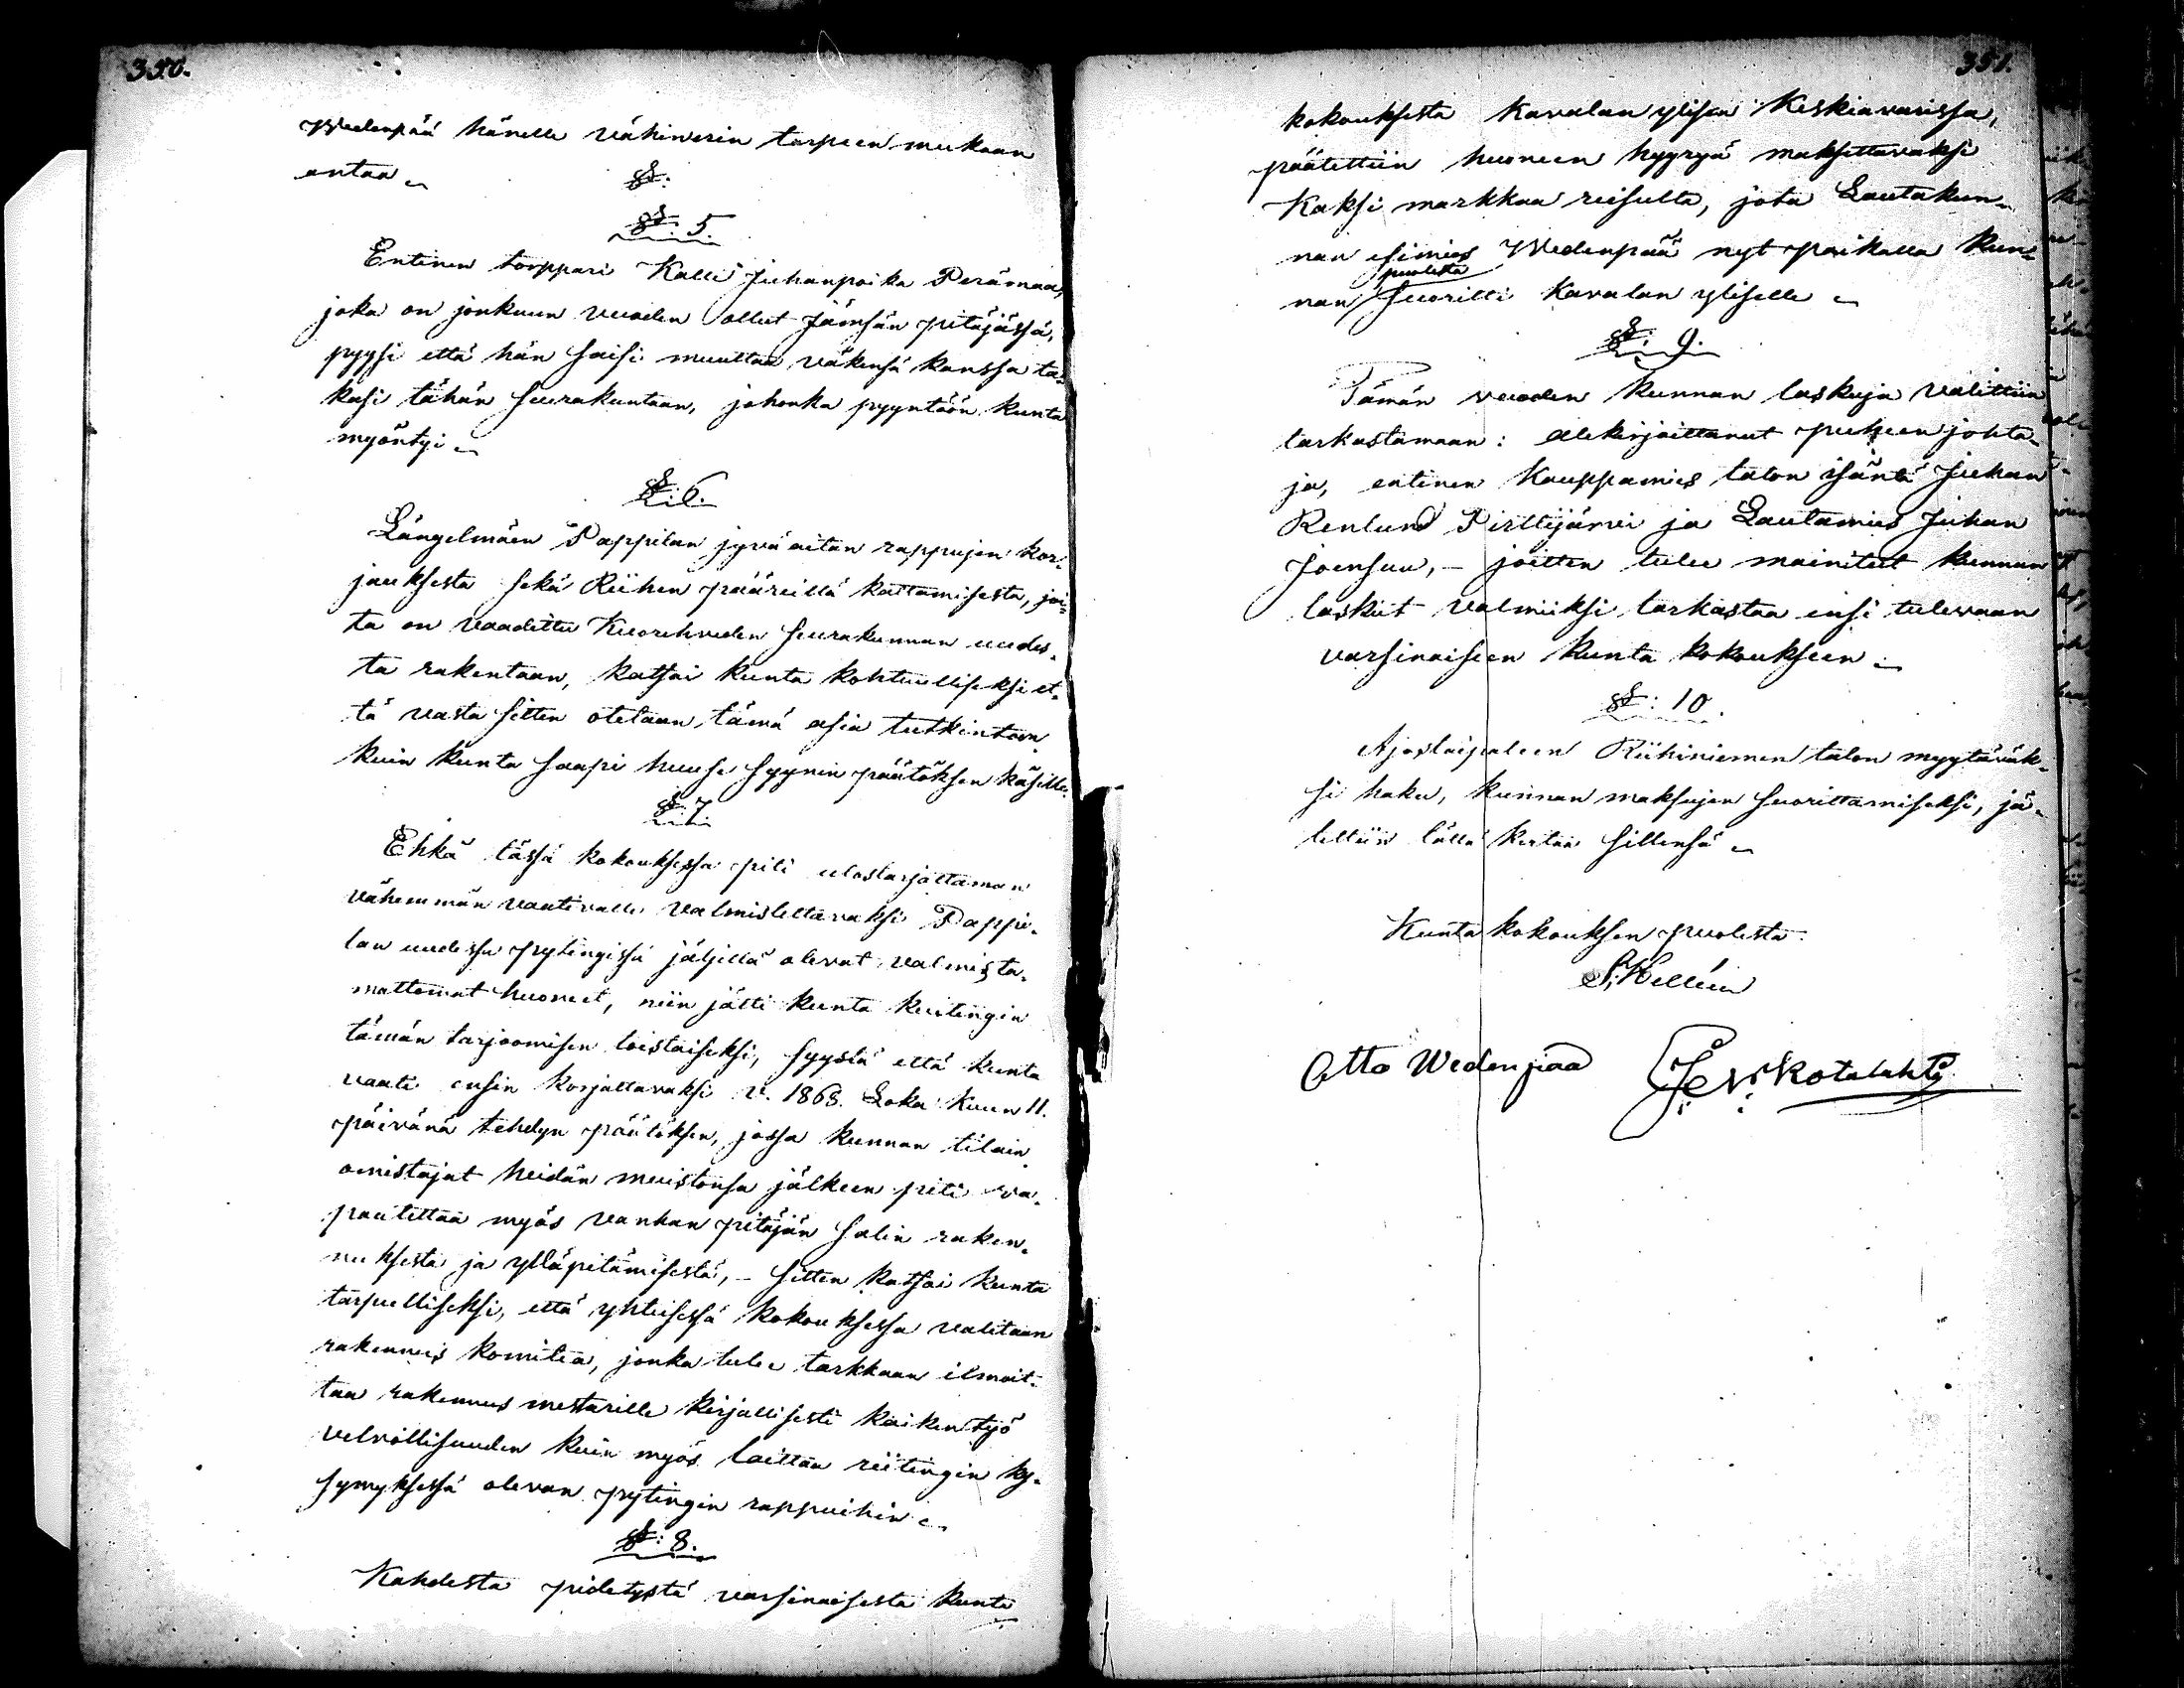 350.
Wedenpää hänelle vähinerin tarpeen mukaan
antaa.
§:
§: 5.
Entinen torppari Kalle Juhanpoika Perämaa,
joka on jonkuun vuoden ollut Jämsän pitäjässä,
pyysi että hän saisi muuttaa väkensä kanssa ta-
kasi tähän seurakuntaan, johonka pyyntöön kunta
myöntyi.
§: 6.
Längelmäen Pappilan jyvä aitan rappujen kor-
jauksesta sekä Riihen pääreillä kattamisesta, joi-
ta on vaadittu Kuorehveden seurakunnan uudes-
ta rakentaan, katsoi kunta kohtuulliseksi et-
tä vasta sitten otetaan tämä asia tutkintoon
kuin kunta saapi huuse syynin päätöksen käsille.
§: 7.
Ehkä tässä kokouksessa piti ulostarjottaman
vähemmän vaativalle valmistettavaksi Pappi-
lan uudessa pytingissä jäljillä olevat valmista-
mattomat huoneet, niin jätti kunta kuitengin
tämän tarjoomisen toistaiseksi, syystä että kunta
vaati ensin korjattavaksi v. 1868. Loka kuun 11.
päivänä tehdyn päätöksen, jossa kunnan tilain
omistajat heidän muistonsa jälkeen piti va-
pautettaa myös vanhan pitäjän salin raken-
nuksesta ja ylläpitämisestä, – sitten katsoi kunta
tarpeelliseksi, että yhteisessä kokouksessa valitaan
rakennus komitea, jonka tulee tarkkaan ilmoit-
taa rakennus mestarille kirjallisesti kaiken työ
velvollisuuden kuin myös laittaa riitingin ky-
symyksessä olevan pytingin rappuihin.
§: 8.
Kahdesta pidetystä varsinaisesta kunta
351.
kokouksesta Kavalan ylisen Keskiavarissa,
päätettiin huoneen hyyryä maksettavaksi
Kaksi markkaa reisulta, jota Lautakun-
nan esimies Wedenpää nyt paikalla Kun-
puolesta
nan suoritti Kavalan yliselle.
§: 9.
Tämän vuoden kunnan laskuja valittiin
tarkastamaan: allekirjoittanut puheen johta-
ja, entinen Kauppamies talon isäntä Juhan
Renlund Pirttijärvi ja Lautamies Juhan
Joensuu, – joitten tulee mainitut kunnan
laskut valmiiksi tarkastaa ensi tulevaan
varsinaiseen kunta kokoukseen.
§: 10.
Ajoslaipaleen Riihiniemen talon myytäväk-
si haku, kunnan maksujen suorittamiseksi, jä-
tettiin tällä kertaa sillensä.
Kunta kokouksen puolesta:
S. Helléin
Otto Wedenpää